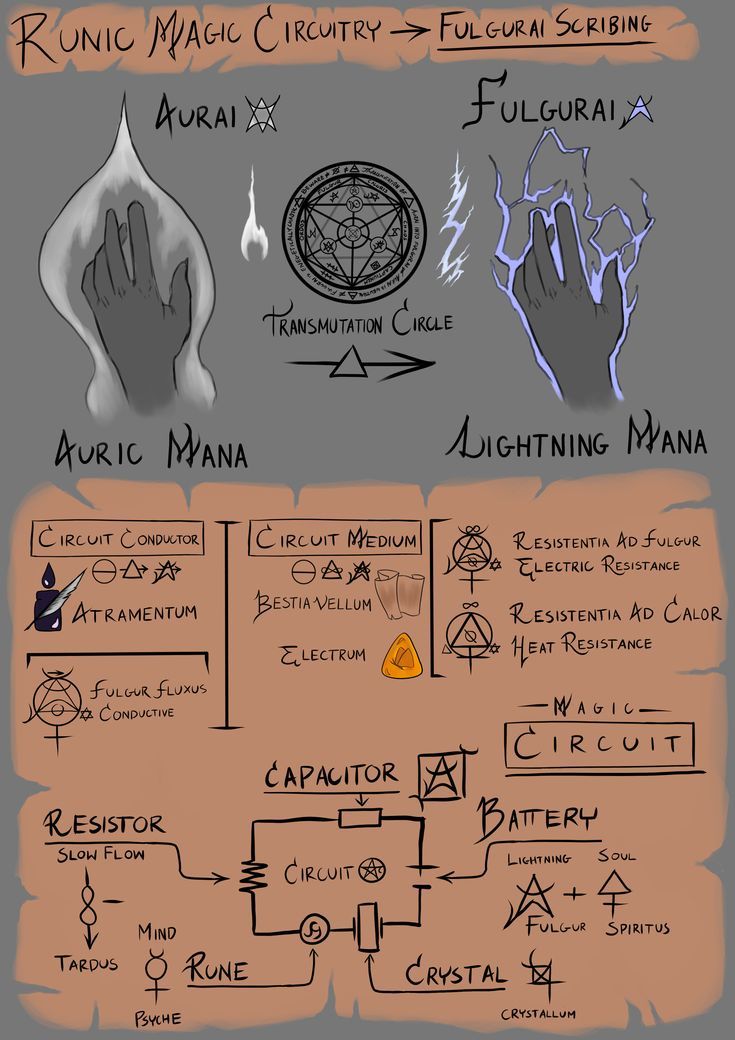 Runic Magic Circuitry → Fulgurai Scribing
Aurai
Fulgurai
Transmutation Circle
Auric Mana
Lightning Mana
Circuit Conductor
Atramentum
Fulgur Fluxus
Conductive
Circuit Medium
Bestia-Vellum
Electrum
Resistentia Ad Fulgur
Electric Resistance
Resistentia Ad Calor
Heat Resistance
Magic
Circuit
Capacitor
Resistor
Slow Flow
Tardus
Battery
Lightning
Fulgur
+
Soul
Spiritus
Circuit
Mind
Psyche
Rune
Crystal
Crystallum